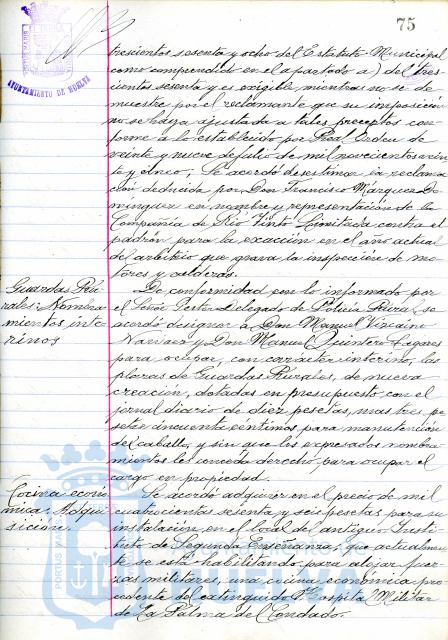 75
AYUNTAMIENTO DE HUELVA
trescientos sesenta y ocho del Estatuto Municipal
como comprendido en el apartado a) del tres-
cientos sesenta y es exigible mientras no se de-
muestre por el reclamante que su imposición
no se haya ajustada a tales preceptos con-
forme a lo establecido por Real Orden de
veinte y nueve de julio de mil novecientos vein-
te y cinco; Se acordó desestimar la reclama-
ción deducida por Don Francisco Márquez Do-
minguez en nombre y representación de la
Compañía de Rio Tinto Limitada contra el
padrón para la exacción en el año actual
del arbitrio que grava la inspección de mo-
tores y calderas.
Guardas Ru-
rales: Nombra-
mientos inte-
rinos
De conformidad con lo informado por
el Señor Gestor Delegado de Policia Rural, se
acordó designar a Don Manuel Vizcaino
Narvaez y Don Manuel Quintero Lagares
para ocupar, con carácter interino, las
plazas de Guardas Rurales, de nueva
creación, dotadas en presupuesto con el
jornal diario de diez pesetas, mas tres pe-
setas cincuenta céntimos para manutención
del caballo, y sin que los expresados nombra-
mientos les conceda derecho para ocupar el
cargo en propiedad.
Cocina econó-
mica: Adqui-
sición.
Se acordó adquirir en el precio de mil
cuatrocientas sesenta y seis pesetas para su
instalación en el local del antiguo Insti-
tuto de Segunda Enseñanza, que actualmen-
te se está habilitando para alojar fuer-
zas militares, una cocina económica pro-
cedente del extinguido Hospital Militar
de La Palma del Condado.
PORTUS MARIS